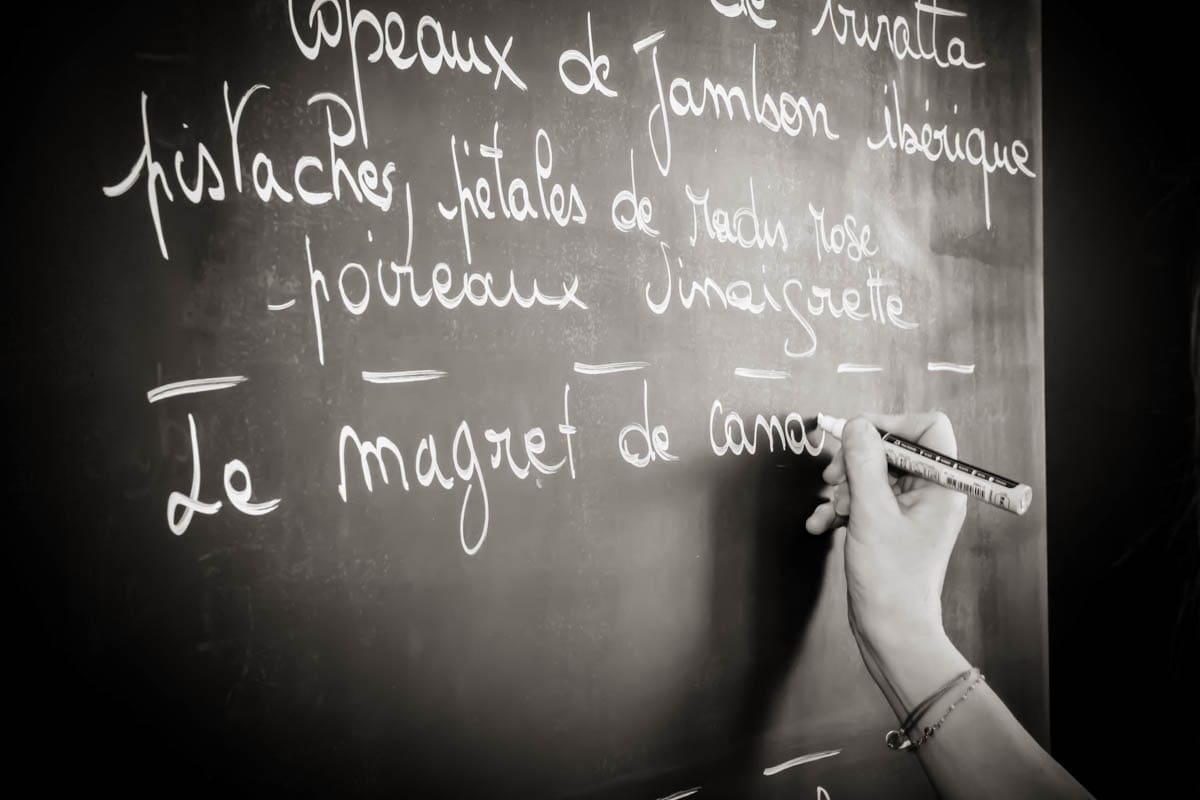 de buratta
Copeaux de Jambon ibérique
pistaches, pétales de radis rose
- poireaux vinaigrette
Le magret de cana